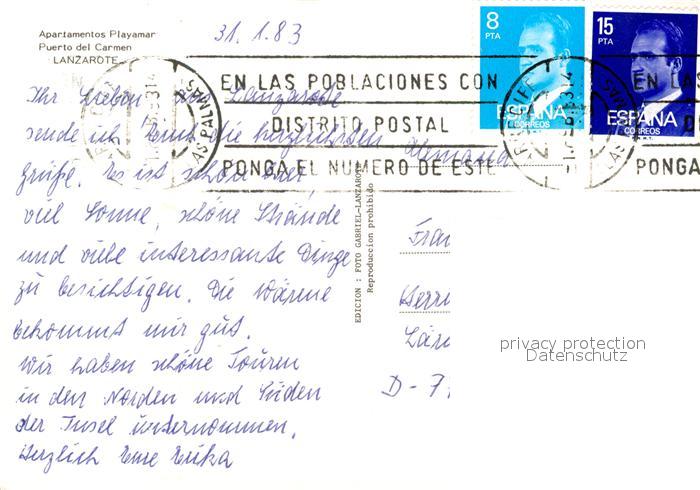 Apartamentos Playamar
Puerto del Carmen
LANZAROTE
31. 1. 83
8
PTA
ESPAÑA
CORREOS
15
PTA
ESPAÑA
CORREOS
EN LAS POBLACIONES CON
DISTRITO POSTAL
PONGA EL NUMERO DE ESTE
EN LA
D
PONGA
Ihr Lieben, von Lanzarote
sende ich Euch die herzlichsten
Grüße. Es ist schön hier,
viel Sonne, schöne Strände
und viele interessante Dinge
zu besichtigen. Die Wärme
bekommt mir gut.
Wir haben schöne Touren
in den Norden und Süden
der Insel unternommen.
Herzlich Eure Erika
EDICION : FOTO GABRIEL-LANZAROTE
Reproduccion prohibido
Alemania
Frau
Herrn
D - 7
privacy protection
Datenschutz